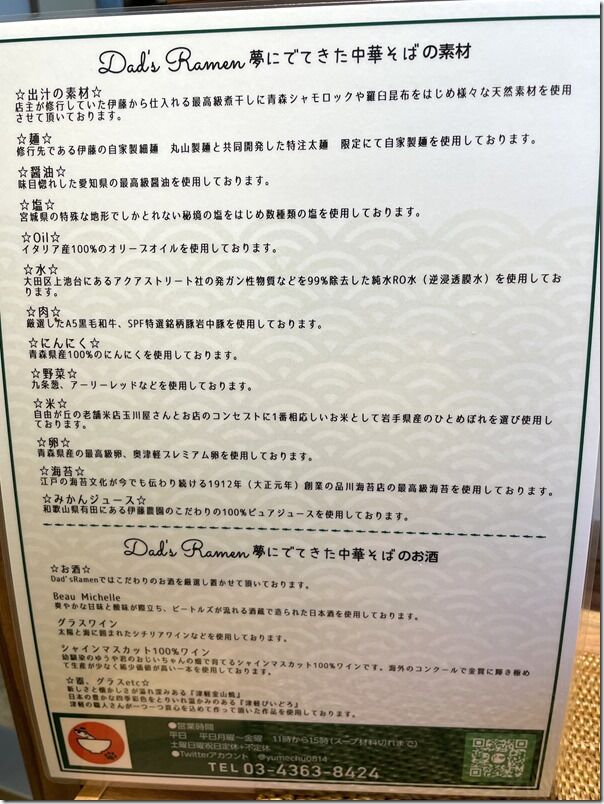 Dad's Ramen 夢にでてきた中華そばの素材
☆出汁の素材☆
店主が修行していた伊藤から仕入れる最高級煮干しに青森シャモロックや羅臼昆布をはじめ様々な天然素材を使用
させて頂いております。
☆麺☆
修行先である伊藤の自家製細麺　丸山製麺と共同開発した特注太麺　限定にて自家製麺を使用しております。
☆醤油☆
味目惚れした愛知県の最高級醤油を使用しております。
☆塩☆
宮城県の特殊な地形でしかとれない秘境の塩をはじめ数種類の塩を使用しております。
☆Oil☆
イタリア産100%のオリーブオイルを使用しております。
☆水☆
大田区上池台にあるアクアストリート社の発ガン性物質などを99%除去した純水RO水（逆浸透膜水）を使用してお
ります。
☆肉☆
厳選したA5黒毛和牛、SPF特選銘柄豚岩中豚を使用しております。
☆にんにく☆
青森県産100%のにんにくを使用しております。
☆野菜☆
九条葱、アーリーレッドなどを使用しております。
☆米☆
自由が丘の老舗米店玉川屋さんとお店のコンセプトに1番相応しいお米として岩手県産のひとめぼれを選び使用し
ております。
☆卵☆
青森県産の最高級卵、奥津軽プレミアム卵を使用しております。
☆海苔☆
江戸の海苔文化が今でも伝わり続ける1912年（大正元年）創業の品川海苔店の最高級海苔を使用しております。
☆みかんジュース☆
和歌山県有田にある伊藤農園のこだわりの100%ピュアジュースを使用しております。
Dad's Ramen 夢にでてきた中華そばのお酒
☆お酒☆
Dad'sRamenではこだわりのお酒を厳選し置かせて頂いております。
Beau Michelle
爽やかな甘味と酸味が際立ち、ビートルズが流れる酒蔵で造られた日本酒を使用しております。
グラスワイン
太陽と海に囲まれたシチリアワインなどを使用しております。
シャインマスカット100%ワイン
幼馴染のゆうや君のおじいちゃんの畑で育てるシャインマスカット100%ワインです。海外のコンクールで金賞に輝き極め
て生産が少なく希少価値が高い一本を使用しております。
☆器、グラスetc☆
新しさと懐かしさが溢れ深みある『津軽金山焼』
日本の豊かな四季彩色をとりいれ温かみのある『津軽びいどろ』
津軽の職人さんが一つ一つ真心を込めて作って頂いた作品を使用しております。
●営業時間
平日　平日月曜〜金曜　11時から15時（スープ材料切れまで）
土曜日曜祝日定休+不定休
●Twitterアカウント　@yumechu0814
TEL 03-4363-8424